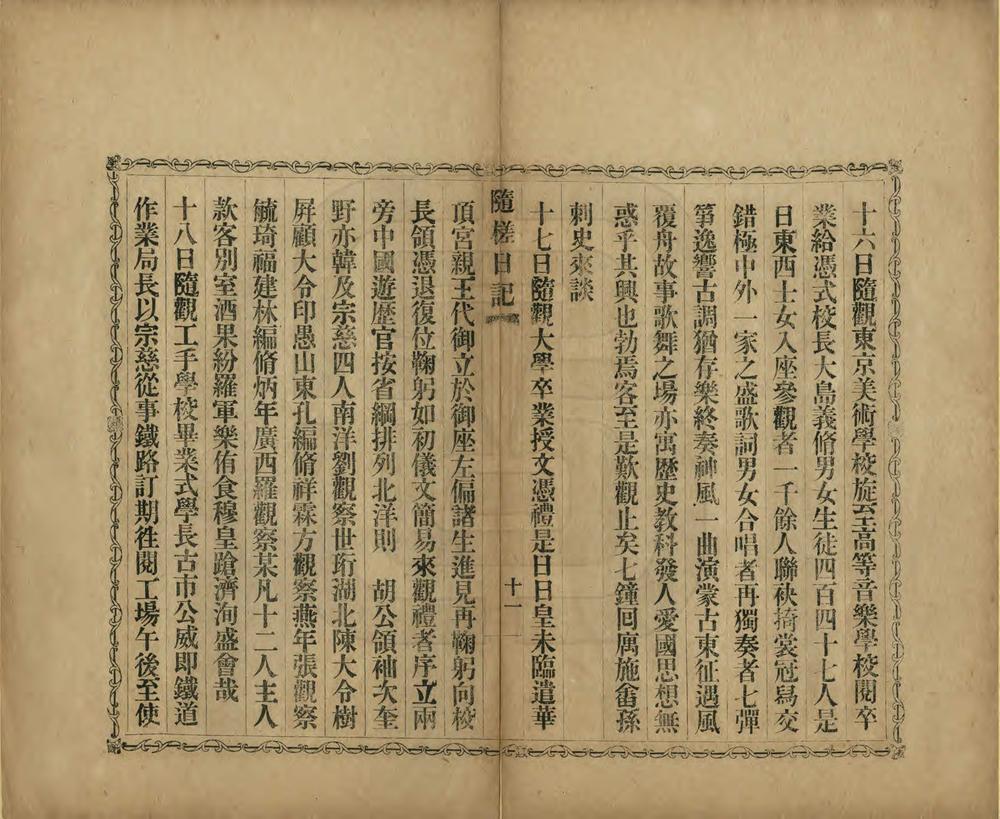 十六日隨觀東京美術學校旋至高等音樂學校閱卒
業給憑式校長大島義脩男女生徒四百四十七人是
日東西士女入座參觀者一千餘人聯袂掎裳冠舄交
錯極中外一家之盛歌詞男女合唱者再獨奏者七彈
箏逸響古調猶存樂終奏神風一曲演蒙古東征遇風
覆舟故事歌舞之場亦寓歷史教科發人愛國思想無
惑乎其興也勃焉客至是歎觀止矣七鐘回寓施畬孫
刺史來談
十七日隨觀大學卒業授文憑禮是日日皇未臨遣華
隨槎日記
十一
頂宮親王代御立於御座左偏諸生進見再鞠躬向校
長領憑退復位鞠躬如初儀文簡易來觀禮者序立兩
旁中國遊歷官按省綱排列北洋則 胡公領袖次奎
野亦韓及宗慈四人南洋劉觀察世珩湖北陳大令樹
屏顧大令印愚山東孔編脩祥霖方觀察燕年張觀察
毓琦福建林編脩炳年廣西羅觀察某凡十二人主人
款客別室酒果紛羅軍樂侑食穆皇蹌濟洵盛會哉
十八日隨觀工手學校畢業式學長古市公威即鐵道
作業局長以宗慈從事鐵路訂期徃閱工場午後至使